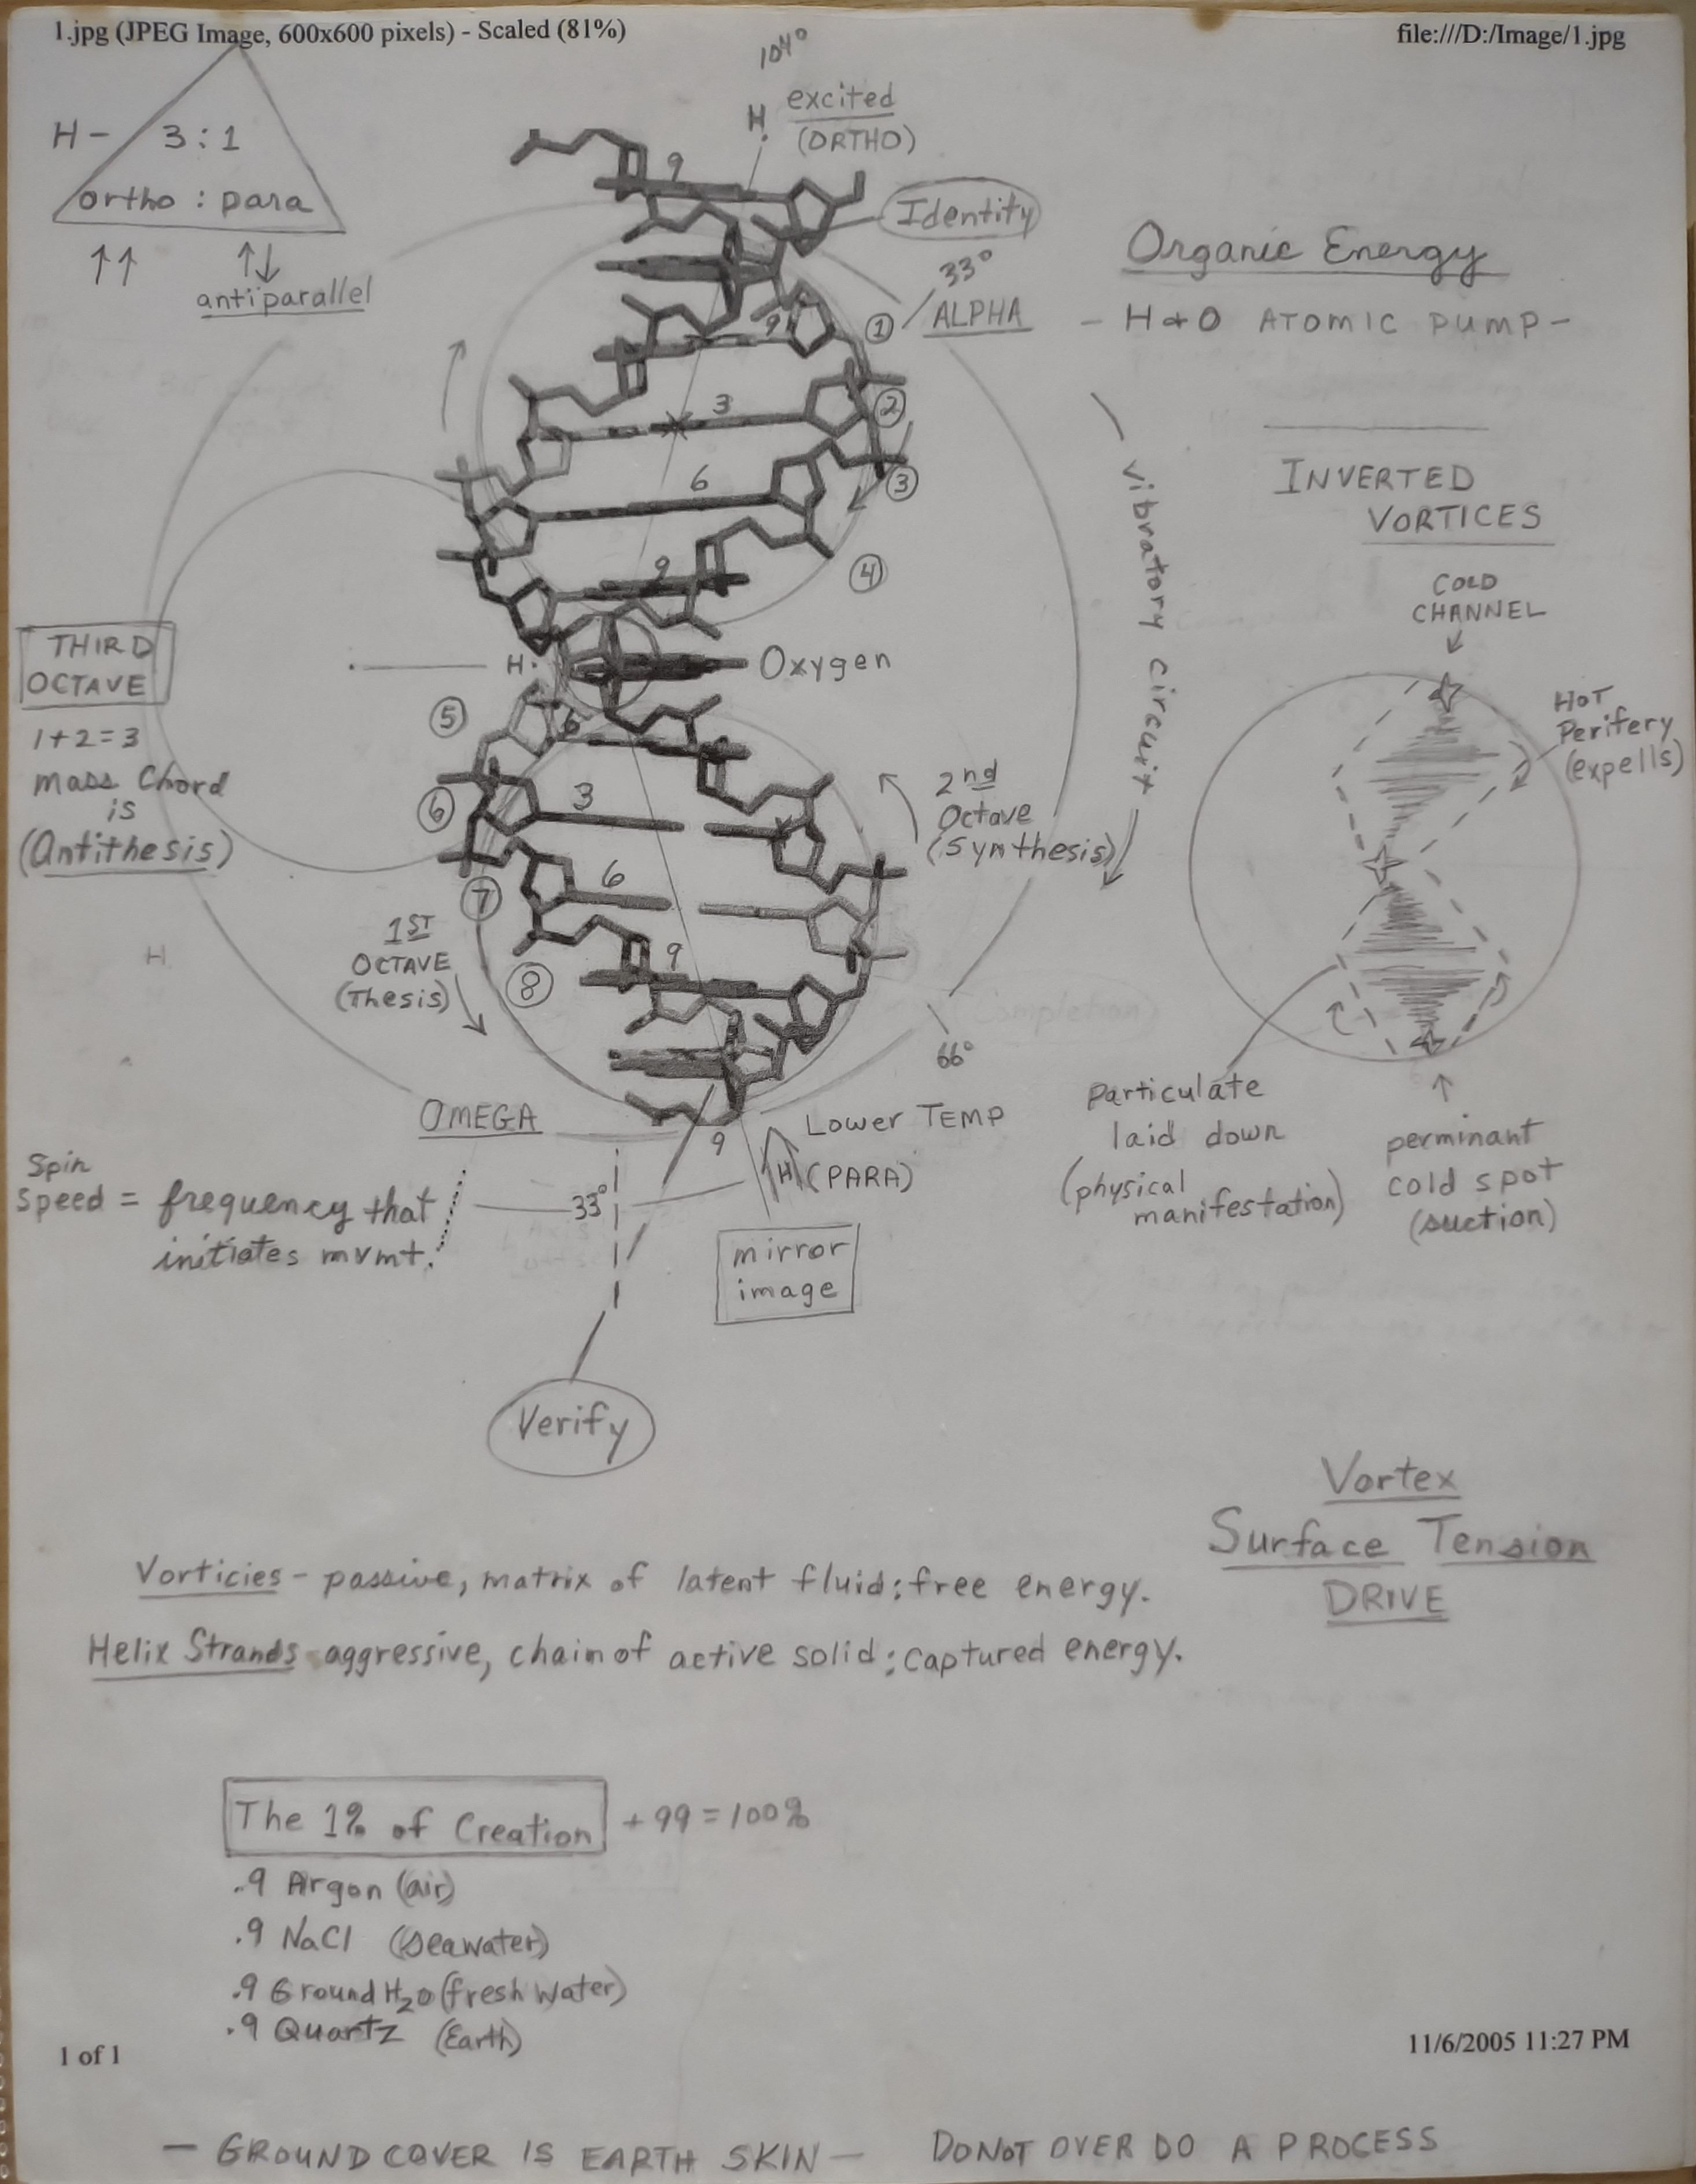 1.jpg (JPEG Image, 600x600 pixels) - Scaled (81%)
file:///D:/Image/1.jpg
104°
H - 3:1
ortho : para
↑↑ ↑↓
antiparallel
H. excited
(ORTHO)
9
Identity
33°
ALPHA
9
①
3
②
6
③
9
④
Organic Energy
- H & O ATOMIC PUMP -
vibratory circuit
INVERTED
VORTICES
COLD
CHANNEL
HOT
Perifery
(expells)
Particulate
laid down
(physical
manifestation)
perminant
cold spot
(suction)
THIRD
OCTAVE
1+2=3
mass Chord
is
(Antithesis)
H.
Oxygen
⑤
6
⑥
3
⑦
6
⑧
9
2nd
Octave
(Synthesis)
1ST
OCTAVE
(Thesis)
H
(Completion)
66°
OMEGA
9
Lower TEMP
H (PARA)
Spin
Speed = frequency that
initiates mvmt.
33°
mirror
image
Verify
Vortex
Surface Tension
DRIVE
Vorticies - passive, matrix of latent fluid; free energy.
Helix Strands aggressive, chain of active solid; captured energy.
The 1% of Creation + 99 = 100%
.9 Argon (air)
.9 NaCl (seawater)
.9 Ground H2O (fresh water)
.9 Quartz (Earth)
1 of 1
11/6/2005 11:27 PM
— GROUND COVER IS EARTH SKIN —
DO NOT OVER DO A PROCESS